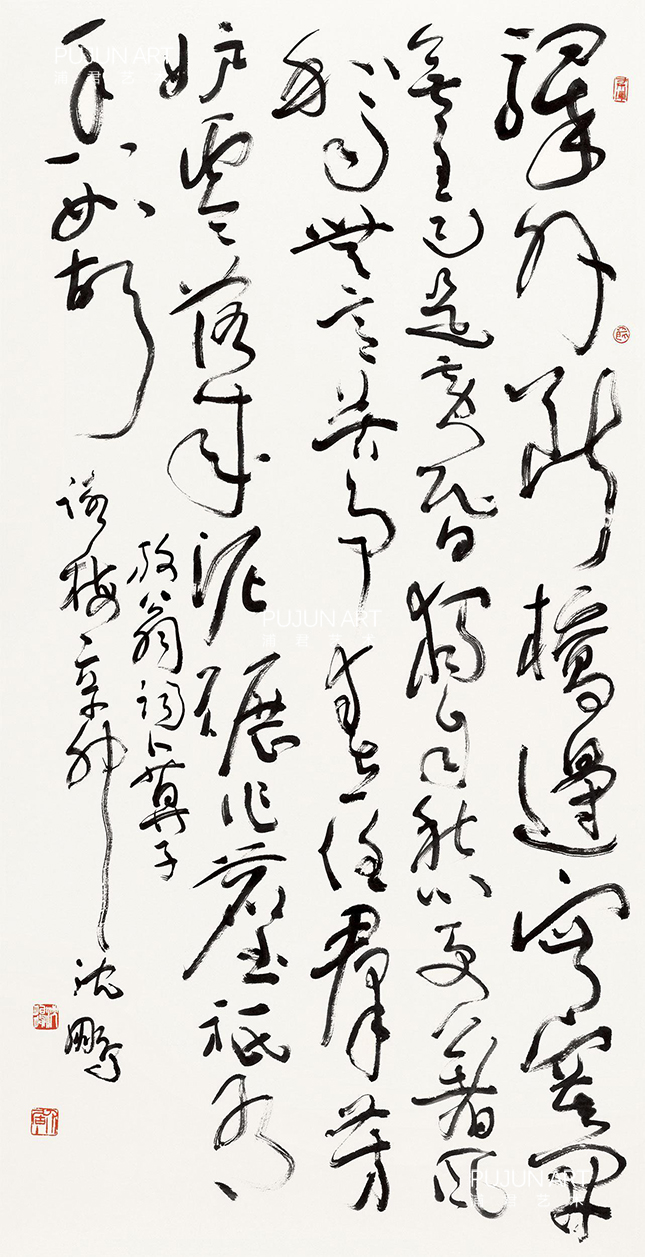 驛外斷橋邊寂寞開
無主已是黃昏獨自愁更著風
和雨無意苦爭春一任羣芳
妒零落成泥碾作塵祇有
香如故
放翁詞卜算子
詠梅辛卯沈鵬
PUJUN ART
浦君艺术
PUJUN ART
浦君艺术
PUJUN ART
浦君艺术